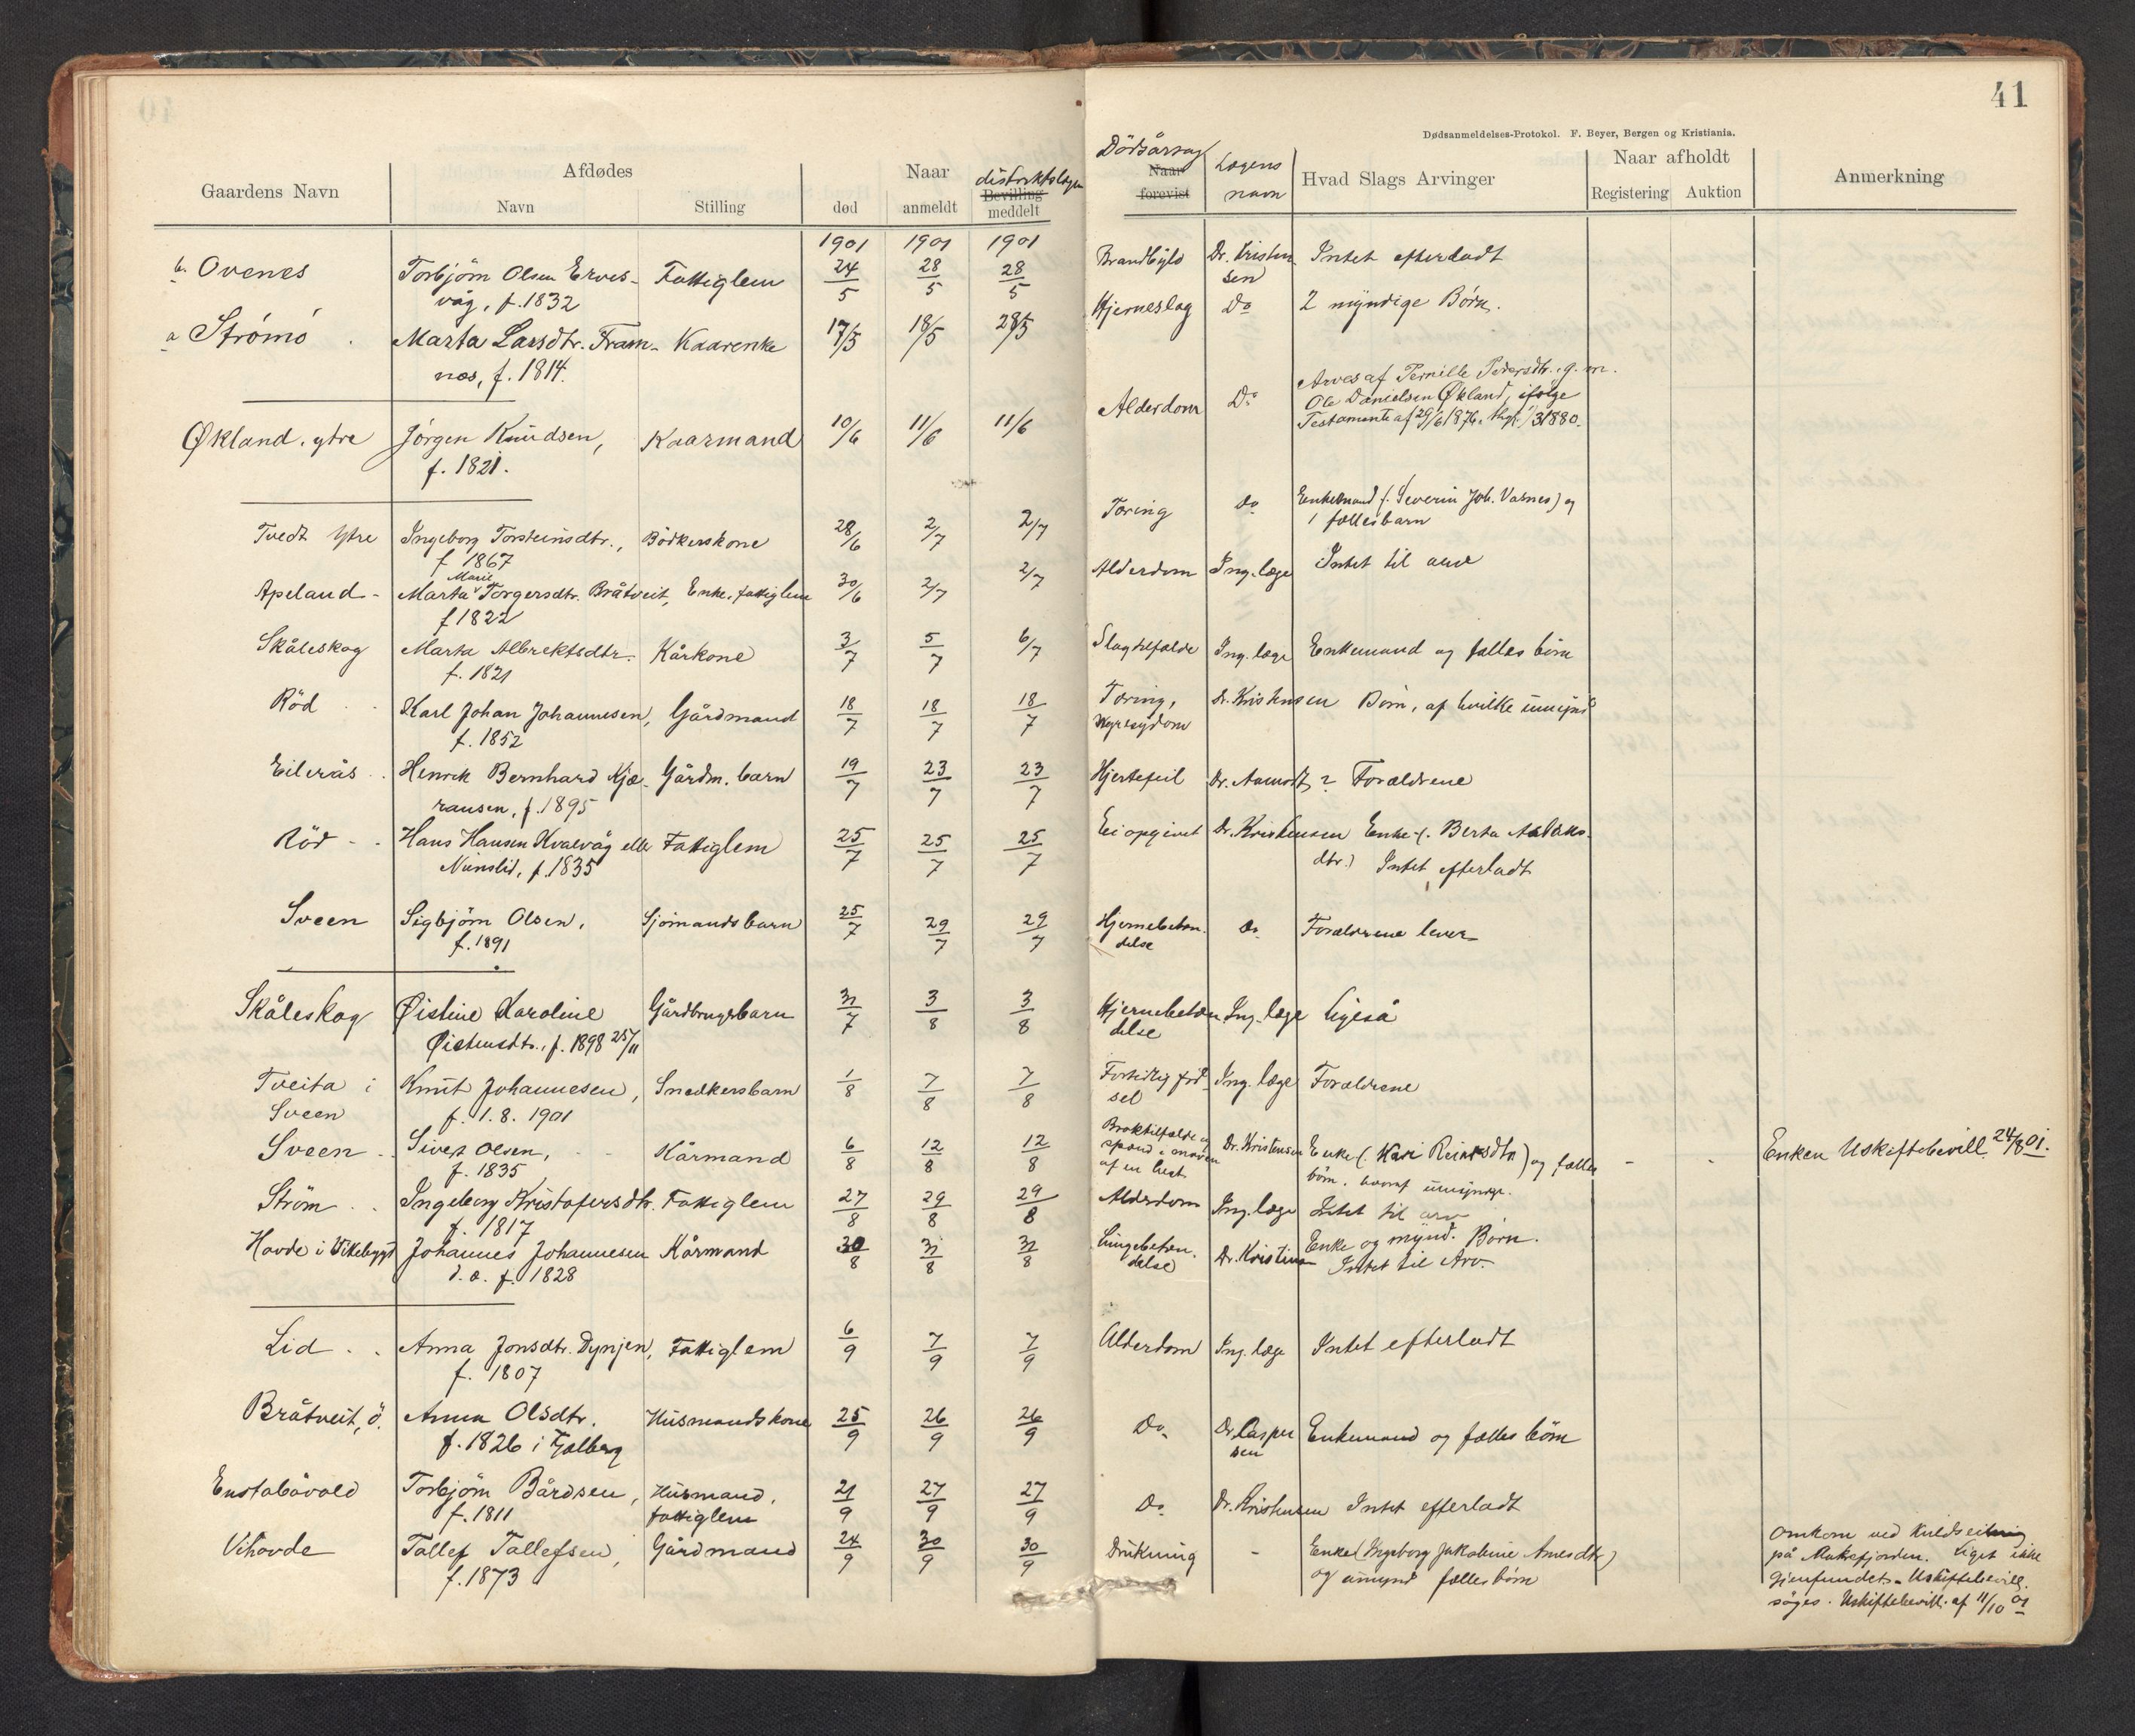 41
Dødsanmeldelses-Protokol. F. Beyer, Bergen og Kristiania.
Gaardens Navn
Afdødes
Navn
Stilling
Naar
død
anmeldt
distriktslægen
Bevilling
meddelt
Dödsårsag
Naar
forevist
Lægens
navn
Hvad Slags Arvinger
Naar afholdt
Registering
Auktion
Anmerkning
1901 1901 1901
b. Ovenes Torbjörn Olsen Erves- Fattiglem 24/5 28/5 28/5 Brandbyld Dr. Kristen- Intet efterladt
våg, f. 1832 sen
a Strömö Marta Larsdtr. Fram- Kaarenke 17/5 18/5 28/5 Hjerneslag Do 2 myndige Börn.
næs, f. 1814.
Økland, ytre Jörgen Knudsen, Kaarmand 10/6 11/6 11/6 Alderdom Do Arves af Pernille Pedersdtr. g. m.
f. 1821. Ole Danielsen Økland, ifølge
Testamente af 29/6 1876, thgl. 1/3 1880.
Tvedt ytre Ingeborg Torsteinsdtr., Bödkerskone 28/6 2/7 2/7 Tæring Do Enkemand (. Severin Joh. Valnes) og
f 1867 1 fællesbarn
Marie
Apeland - Marta Torgersdtr. Bråtveit, Enke, fattiglem 30/6 2/7 2/7 Alderdom Ing. læge Intet til arv
f 1822
Skåleskog Marta Albrektsdtr. Kårkone 3/7 5/7 6/7 Slagtilfælde Ing. læge Enkemand og fælles börn
f. 1821
Röd Karl Johan Johannesen, Gårdmand 18/7 18/7 18/7 Tæring, Dr. Kristensen Börn, af hvilke umynd
f. 1852 Nyresygdom
Eilerås Henrik Bernhard Kjæ- Gårdm. barn 19/7 23/7 23/7 Hjertefeil Dr. Aamodt ? Forældrene
ransen, f. 1895
Röd Hans Hansen Kvalvåg eller Fattiglem 25/7 25/7 25/7 Ei opgivet Dr. Kristensen Enke (. Berta Aslaks-
f. 1835 dtr.) Intet efterladt
Sveen Sigbjörn Olsen, Sjömandsbarn 25/7 29/7 29/7 Hjernebetæn- Do Forældrene lever
f. 1891 delse
Skåleskog Øistine Karoline Gårdbrugsbarn 31/7 3/8 3/8 Hjernebetæn- Ing. læge ligeså
Øistensdtr., f. 1898 25/11 delse
Tveita i Knut Johannesen, Snedkersbarn 1/8 7/8 7/8 Fortidlig föd- Ing. læge Forældrene
Sveen f. 1. 8. 1901 sel
Sveen Sivert Olsen, Kårmand 6/8 12/8 12/8 Broktilfælde og Dr. Kristensen Enke (. Kari Reinertsdtr) og fælles - - Enken Uskiftebevill. 24/8 01.
f. 1835 spænd i maven börn, hvoraf umyndige.
af en hest
Ström Ingeborg Kristofersdtr. Fattiglem 27/8 29/8 29/8 Alderdom Ing. læge Intet til arv
f. 1817
Hovde i Vikebygd Johannes Johannesen Kårmand 30/8 31/8 31/8 Lungebetæn- Dr. Kristensen Enke og mynd. Börn.
d. æ. f. 1828 delse Intet til Arv.
Lid Anna Jonsdtr. Dynjen, Fattiglem 6/9 7/9 7/9 Alderdom Ing. læge Intet efterladt
f. 1807
Bråtveit, ö. Anna Olsdtr. Husmandskone 25/9 26/9 26/9 Do Dr. Casper- Enkemand og fælles börn
f. 1826 i Fjelberg sen
Enstabövold Torbjörn Bårdsen, Husmand, 21/9 27/9 27/9 Do Dr. Kristensen Intet efterladt
f. 1811 fattiglem
Vihovde Tallef Tallefsen, Gårdmand 24/9 30/9 30/9 Drukning - Enke (Ingeborg Jakobine Arnesdtr) Omkom ved Kuldseiling
f. 1873 og umynd fællesbörn på Matrefjorden. Liget ikke
gjenfundet. Uskiftebevill.
söges. Uskiftebevill. af 11/10 01